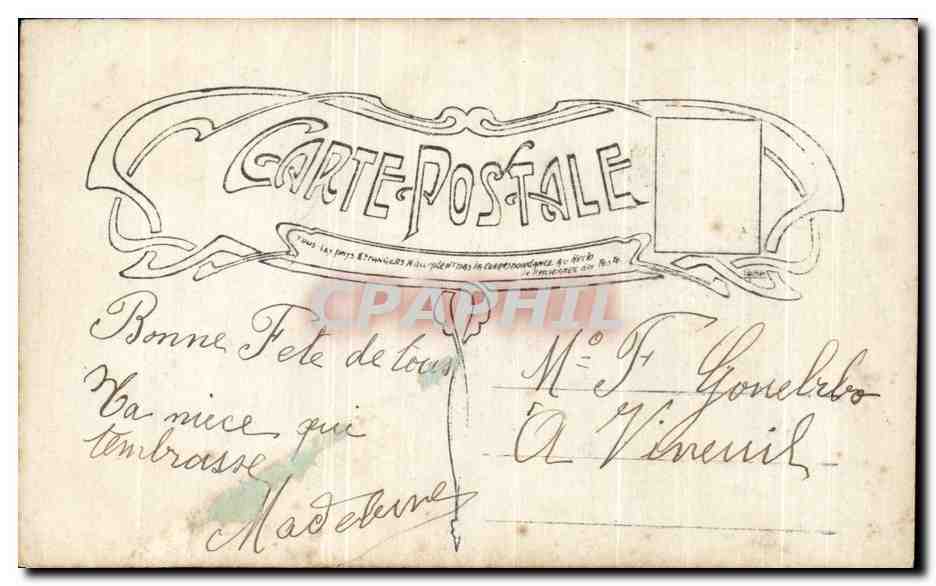 CARTE POSTALE
TOUS LES PAYS ETRANGERS N'ACCEPTENT PAS LA CORRESPONDANCE AU RECTO
CPAPHIL
Bonne Fete de tous
Ta niece qui
tembrasse
Madeleine
Mo F
A Vineuil